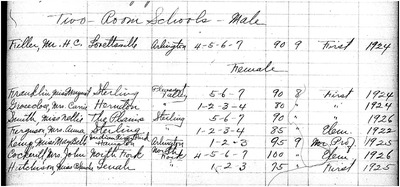 Two-Room Schools - Male
Feller, Mr. H.C. Lovettsville Arlington 4-5-6-7 90 9 First 1924
Female
Franklin, Miss Margaret Sterling Pleasant Valley 5-6-7 90 8 First 1924
Mrs. Herndon " 1-2-3-4 80 " " 1924
Smith, Miss Nellie The Plains Sterling 5-6-7 90 " " 1926
Ferguson, Mrs. Anna Sterling " 1-2-3-4 85 " Elem. 1922
Kemp, Miss Hamilton Arlington 1-2-3 95 9 Nor. Prof. 1925
Cockerill, Mrs. John North Fork North Fork 4-5-6-7 100 " Elem. 1926
Hutchison, Miss " 1-2-3 75 " First 1925